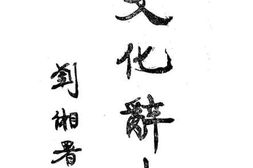 文化辭
劉湘署